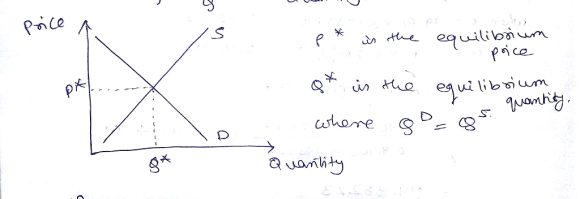 Price
S
P*
D
Q*
Quantity
P* is the equilibrium
price
Q* is the equilibrium
quantity.
where Q^D = Q^S.